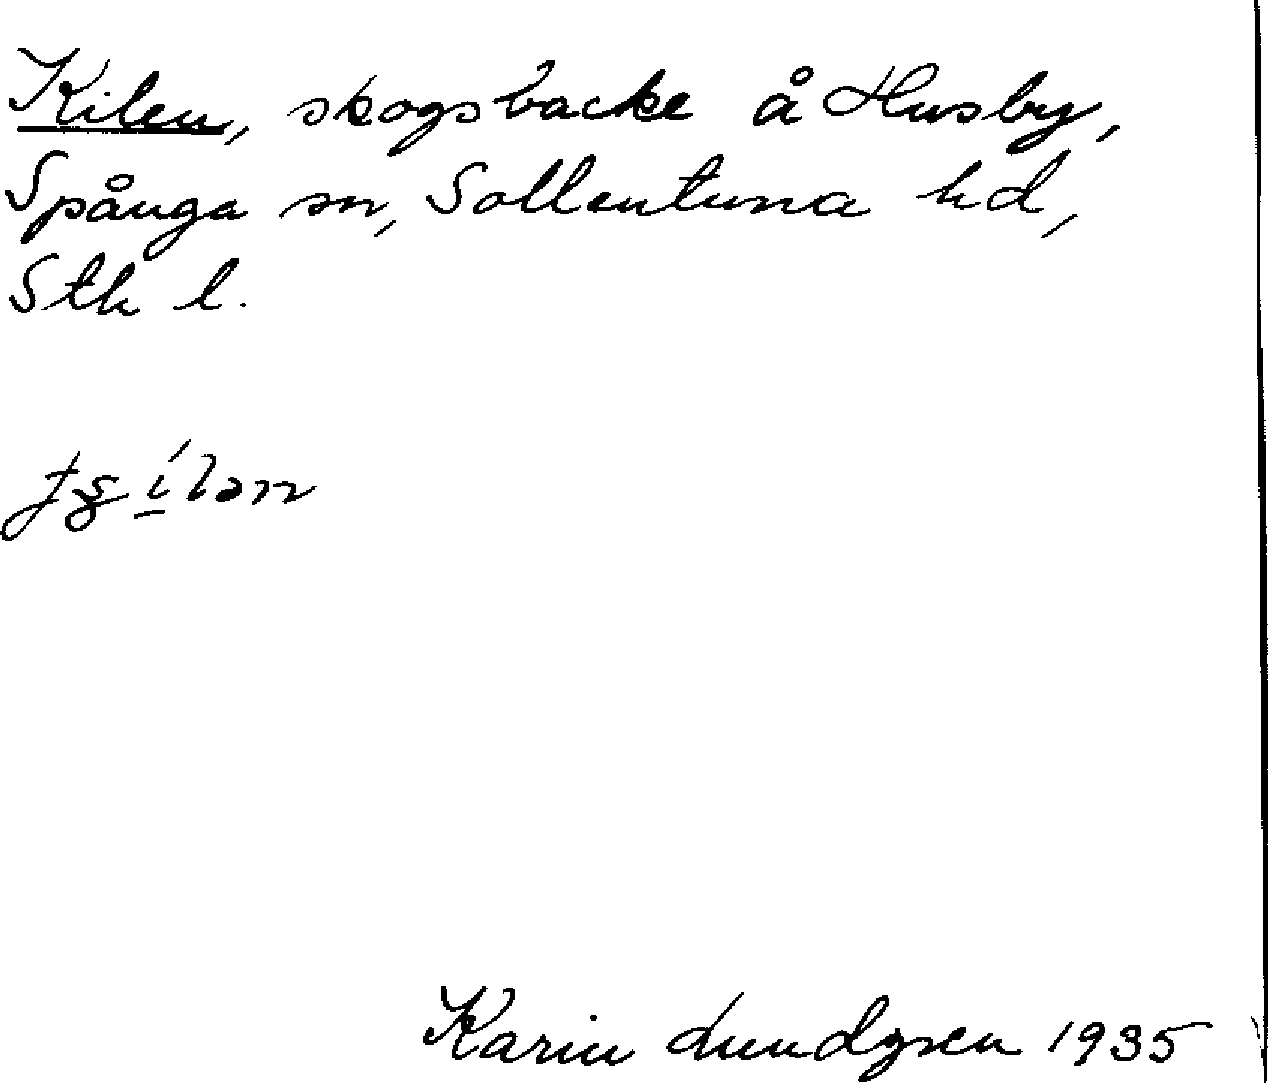 Kilen, skogsbacke å Husby,
Spånga sn, Sollentuna hd,
Stk l.
Karin Lundgren 1935